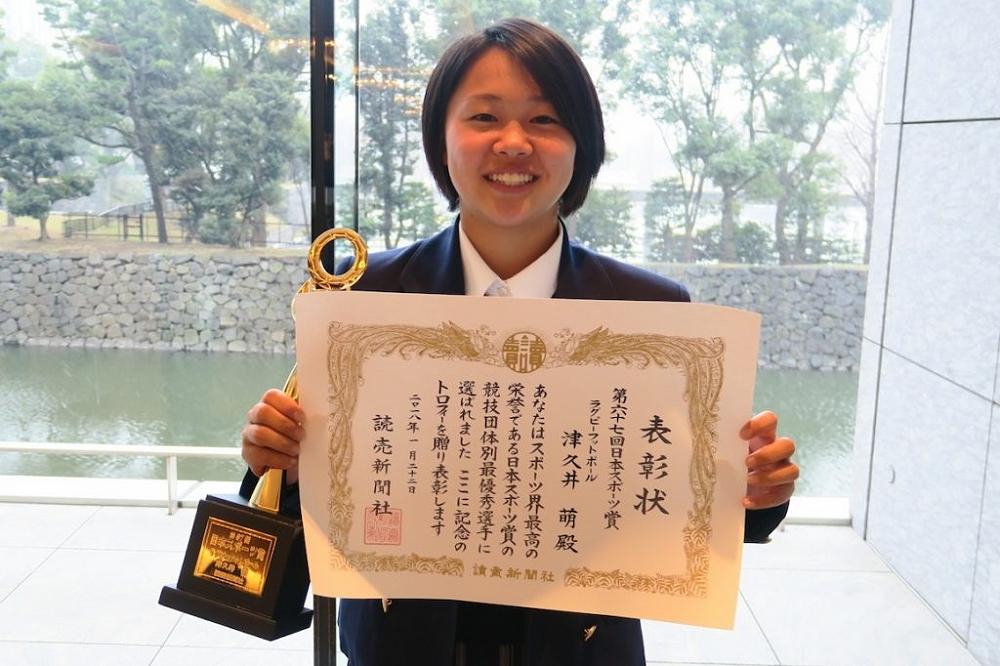 表彰状
第六十七回日本スポーツ賞
ラグビーフットボール
津久井 萌 殿
あなたはスポーツ界最高の
栄誉である日本スポーツ賞の
競技団体別最優秀選手に
選ばれました ここに記念の
トロフィーを贈り表彰します
二〇一八年 一月二十二日
読売新聞社
讀賣新聞社
日本スポーツ賞